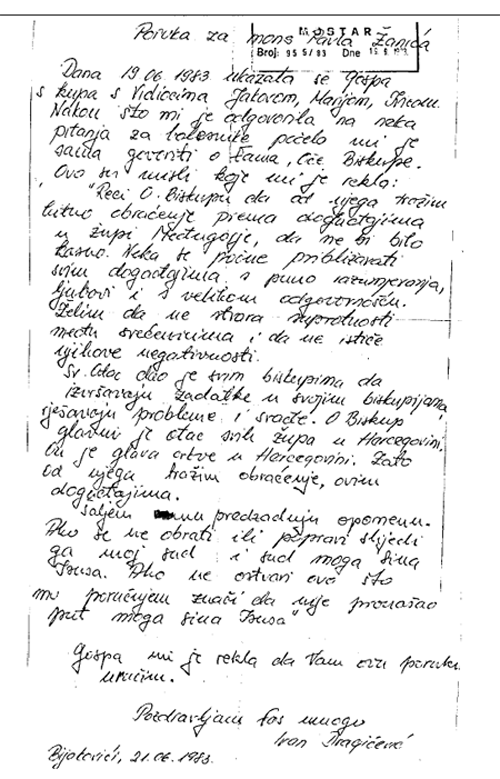 Poruka za mons Pavla Žanića
MOSTAR
Broj: 95 S/83 Dne
Dana 19.06.1983. ukazala se Gospa
s kupa s Vidiocima Jakovom, Marijom,
Nakon što mi je odgovorila na neka
pitanja za bolesnike počelo mi je
sama govoriti o Vama, Oče Biskupe.
Ovo su misli koje mi je rekla:
"Reci O. Biskupu da od njega tražim
hitno obraćenje prema događajima
u župi Međugorje, da ne bi bilo
kasno. Neka se počne približavati
svim događajima s puno razumjevanja,
ljubavi i s velikom odgovornošću.
Želim da ne stvara suprotnosti
među svećenicima i da ne ističe
njihove negativnosti.
Sv. Otac dao je svim biskupima da
izvršavaju zadatke u svojim biskupijama
rješavaju probleme i svađe. O Biskup
glavni je otac svih župa u Hercegovini,
On je glava crkve u Hercegovini. Zato
od njega tražim obraćenje, ovim
događajima.
Šaljem mu predzadnju opomenu.
Ako se ne obrati ili popravi slijedi
ga moj sud i sud moga sina
Isusa. Ako ne ostvari ovo što
mu poručujem znači da nije pronašao
put moga sina Isusa"
Gospa mi je rekla da Vam ovu poruku
uručim.
Pozdravljam Vas mnogo
Ivan Dragičević
Bijakovići, 21.06.1983.